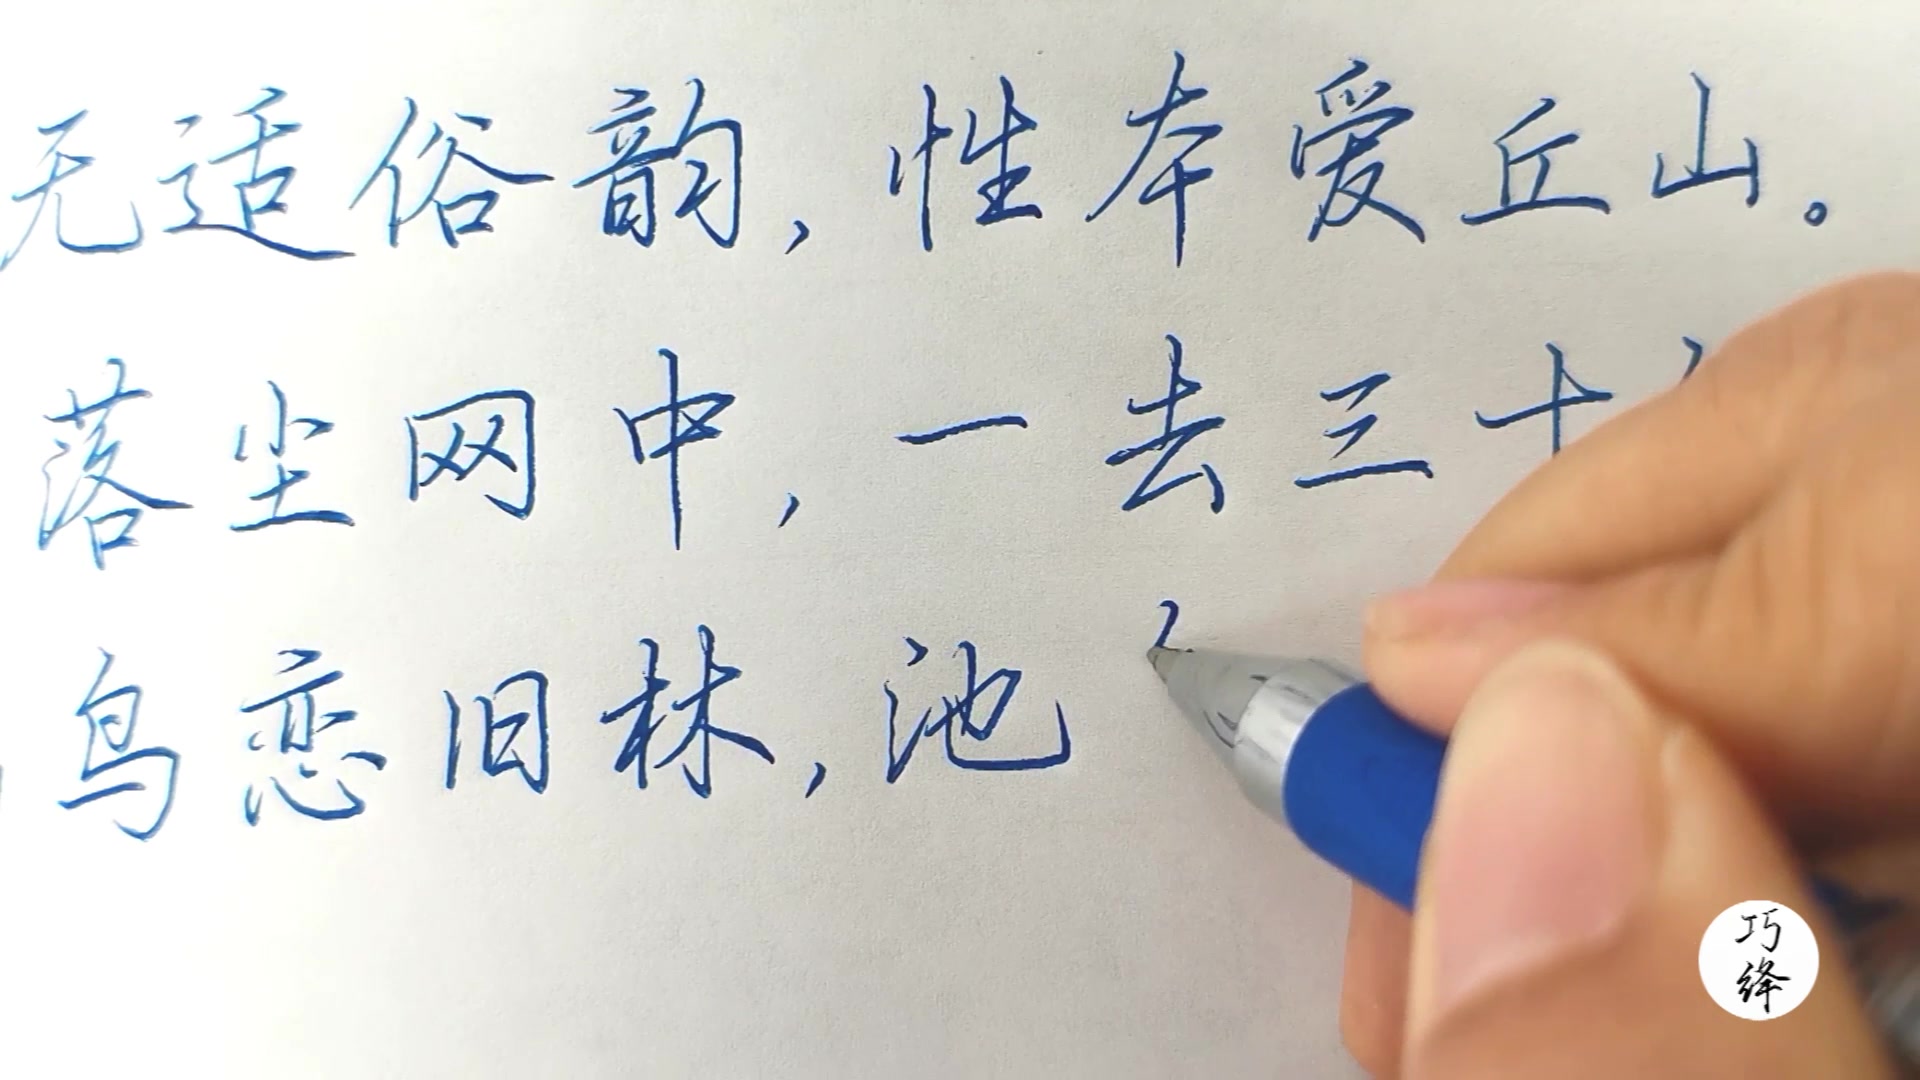 无适俗韵，性本爱丘山。
落尘网中，一去三十
鸟恋旧林，池
巧
绛